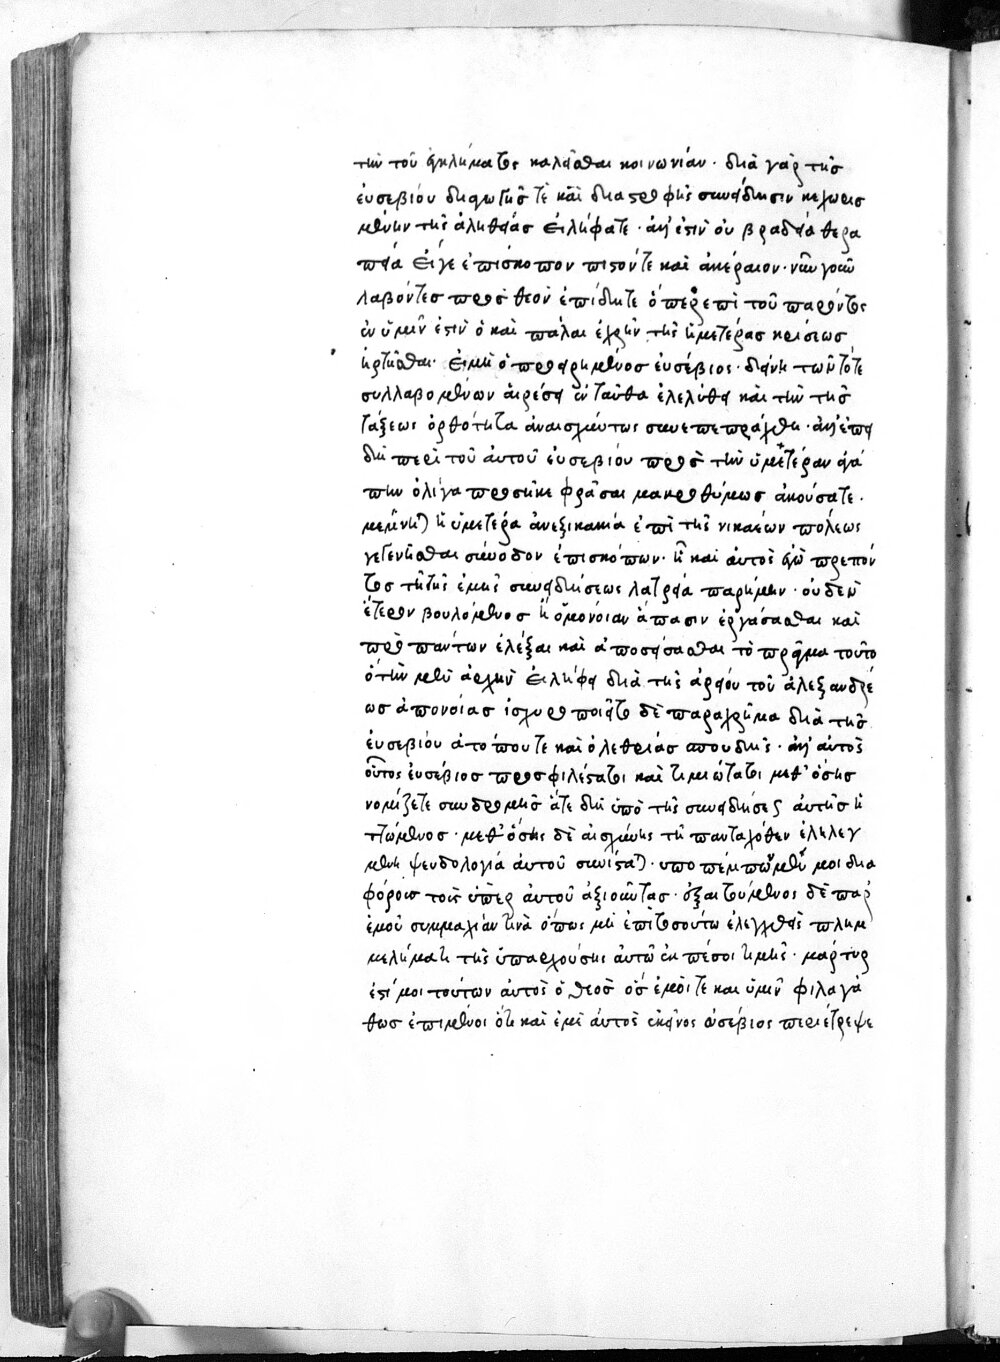 τὴν τοῦ ἐγκλήματος καλεῖσθαι κοινωνίαν· διὰ γὰρ τῆς
εὐσεβίου διαγωγῆς τὲ καὶ διαστροφῆς συνείδησιν κεχωρισ
μένην τῆς ἀληθείας εἰλήφατε· ἀλλ' ἔστιν οὐ βραδεῖα θερα
πεία εἴγε ἐπίσκοπον πιστόν τε καὶ ἀκέραιον· νῦν γοῦν
λαβόντες πρὸς θεὸν ἐπίδητε ὅπερ ἐπὶ τοῦ παρόντος
ἐν ὑμῖν ἐστὶν ὃ καὶ πάλαι ἐχρῆν τῆς ὑμετέρας κρίσεως
ἠρτῆσθαι· εἰ μὴ ὁ προειρημένος εὐσέβιος· δεινῇ τῶν τότε
συλλαβομένων αἱρέσει ἐνταῦθα ἐλελύθει καὶ τὴν τῆς
τάξεως ὀρθότητα ἀναισχύντως συνεπεπράχθη· ἀλλ' ἐπει
δὴ περὶ τοῦ αὐτοῦ εὐσεβίου πρὸς τὴν ὑμετέραν ἀγά
πην ὀλίγα προσῆκε φρᾶσαι μακροθύμως ἀκούσατε·
μέμνηται ἡ ὑμετέρα ἀνεξικακία ἐπὶ τῆς νικαέων πόλεως
γεγενῆσθαι σύνοδον ἐπισκόπων· ᾗ καὶ αὐτὸς ἐγὼ πρεπόν
τως τῇ τῆς ἐμῆς συνειδήσεως λατρεία παρήμην· οὐδὲν
ἕτερον βουλόμενος ἢ ὁμόνοιαν ἅπασιν ἐργάσασθαι καὶ
πρὸ πάντων ἐλέξαι καὶ ἀποσείσασθαι τὸ πρᾶγμα τοῦτο
ὃ τὴν μὲν ἀρχὴν εἰλήφει διὰ τῆς ἀρείου τοῦ ἀλεξανδρέ
ως ἀπονοίας ἰσχυροποιεῖτο δὲ παραχρῆμα διὰ τῆς
εὐσεβίου ἀτόπου τε καὶ ὀλεθρίας σπουδῆς· ἀλλ' αὐτὸς
οὗτος εὐσέβιος προσφιλέστατοι καὶ τιμιώτατοι μεθ' ὅσης
νομίζετε συνδρομῆς ἅτε δὴ ὑπὸ τῆς συνειδήσεως αὐτῆς ἡ
ττώμενος· μεθ' ὅσης δὲ αἰσχύνης τῇ πανταχόθεν ἐλελεγ
μένῃ ψευδολογία αὐτοῦ συνίσταται· ὑποπέμπων μὲν μοι δια
φόρους τοὺς ὑπὲρ αὐτοῦ ἀξιοῦντας· ἐξαιτούμενος δὲ παρ'
ἐμοῦ συμμαχίαν τινὰ ὅπως μὴ ἐπὶ τοσούτω ἐλεγχθεὶς πλημ
μελήματι τῆς ὑπαρχούσης αὐτῶ ἐκπέσοι τιμῆς· μάρτυς
ἐστί μοι τούτων αὐτὸς ὁ θεὸς ὃς ἐμοί τε καὶ ὑμῖν φιλαγά
θως ἐπιμένοι ὅτι καὶ ἐμὲ αὐτὸς ἐκεῖνος εὐσέβιος περιέτρεψε